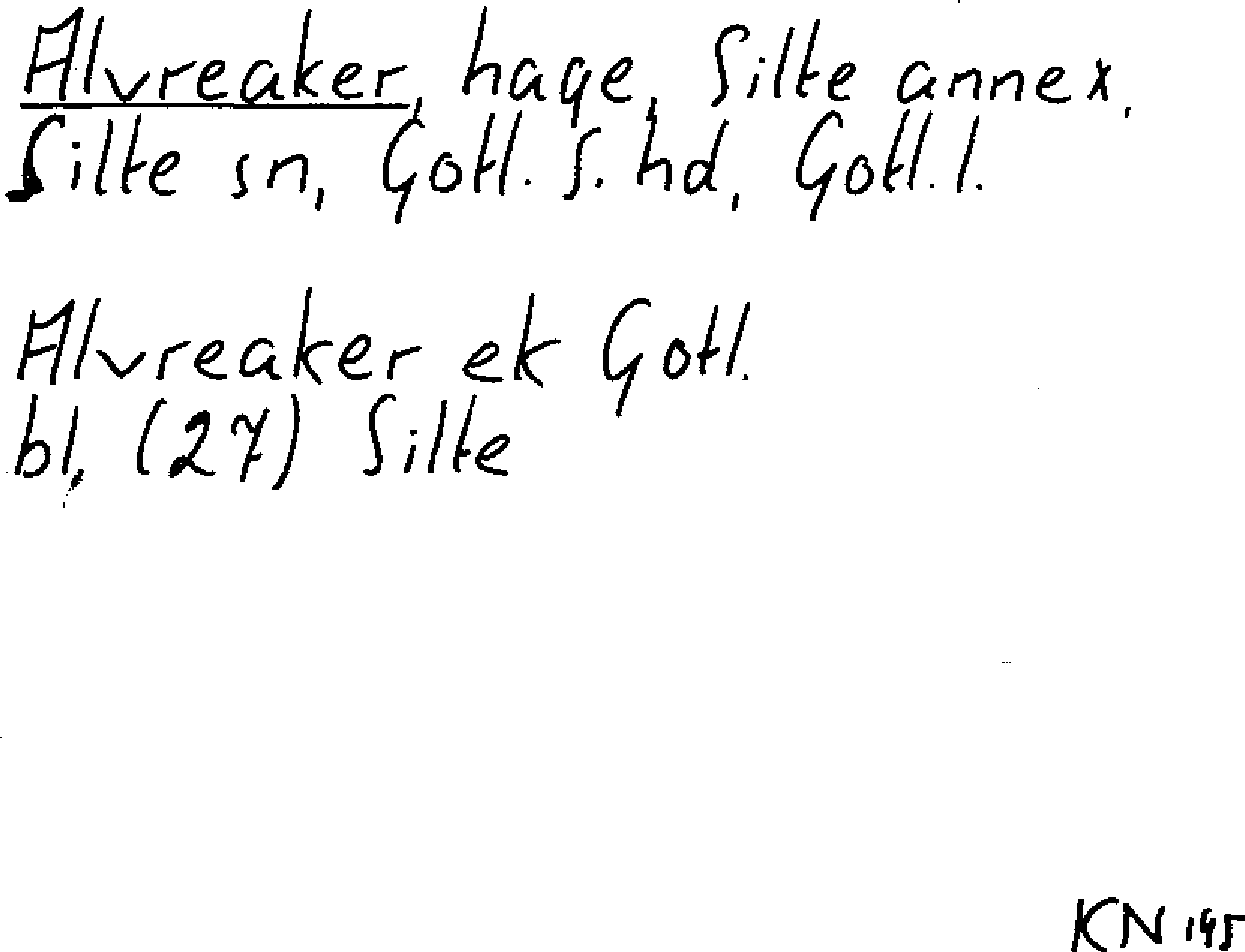 Alvreaker, hage, Silte annex,
Silte sn, Gotl. S. hd, Gotl. l.
Alvreaker ek Gotl.
bl, (27) Silte
KN